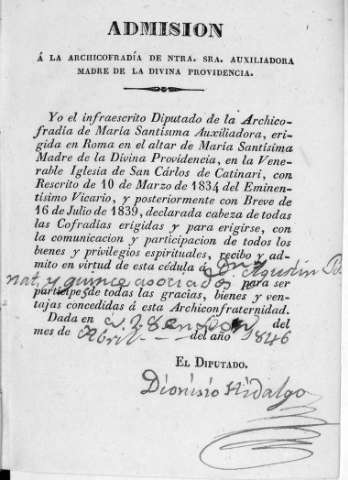 ADMISION
Á LA ARCHICOFRADÍA DE NTRA. SRA. AUXILIADORA
MADRE DE LA DIVINA PROVIDENCIA.
Yo el infraescrito Diputado de la Archico-
fradía de María Santísima Auxiliadora, eri-
gida en Roma en el altar de María Santísima
Madre de la Divina Providencia, en la Vene-
rable Iglesia de San Cárlos de Catinari, con
Rescrito de 10 de Marzo de 1834 del Eminen-
tísimo Vicario, y posteriormente con Breve de
16 de Julio de 1839, declarada cabeza de todas
las Cofradías erigidas y para erigirse, con
la comunicacion y participacion de todos los
bienes y privilegios espirituales, recibo y ad-
mito en virtud de esta cédula á Dn. Agustin
nat, y quince asociados para ser
partícipes de todas las gracias, bienes y ven-
tajas concedidas á esta Archiconfraternidad.
Dada en del
mes de Abril del año 1846
EL DIPUTADO.
Dionisio Hidalgo